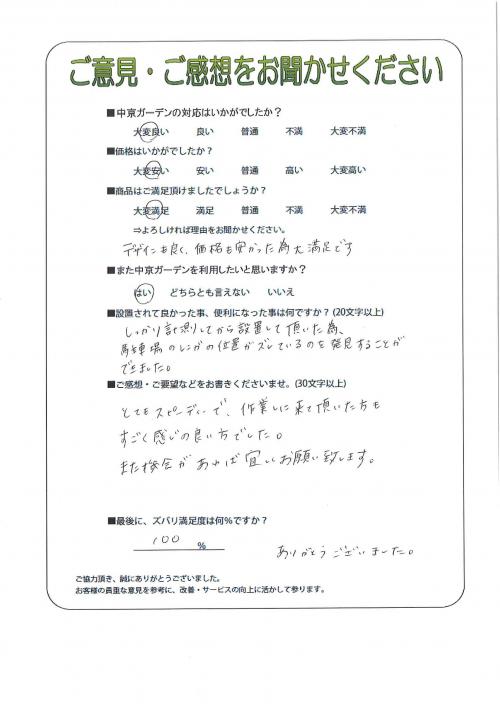 ご意見・ご感想をお聞かせください
■中京ガーデンの対応はいかがでしたか？
大変良い 良い 普通 不満 大変不満
■価格はいかがでしたか？
大変安い 安い 普通 高い 大変高い
■商品はご満足頂けましたでしょうか？
大変満足 満足 普通 不満 大変不満
⇒よろしければ理由をお聞かせください。
デザインも良く、価格も安かった為大満足です
■また中京ガーデンを利用したいと思いますか？
はい どちらとも言えない いいえ
■設置されて良かった事、便利になった事は何ですか？(20文字以上)
しっかり計測してから設置して頂いた為、
駐車場のレンガの位置がズレているのを発見することが
できました。
■ご感想・ご要望などをお書きくださいませ。(30文字以上)
とてもスピーディーで、作業しに来て頂いた方も
すごく感じの良い方でした。
また機会があれば宜しくお願い致します。
■最後に、ズバリ満足度は何％ですか？
100 %
ありがとうございました。
ご協力頂き、誠にありがとうございました。
お客様の貴重な意見を参考に、改善・サービスの向上に活かして参ります。